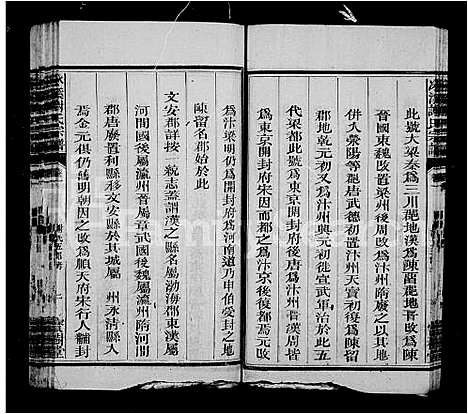 此號大梁秦爲三川郡地漢爲陳留郡地晉改爲陳
留國東魏改置梁州後周改爲汴州隋廢之以其地
併入滎陽等郡唐武德初置汴州天寶初復爲陳留
郡地乾元初又爲汴州興元初徙宣武軍治於此五
代梁都此號爲東京開封府後唐爲汴州晉漢周皆
爲東京開封府宋因而都之爲汴京金復都焉元改
爲汴梁明仍爲開封府爲河南道乃申伯受封之地
陳留名郡始於此
文安郡詳按一統志蓋謂漢之縣名屬渤海郡東漢屬
河間國後屬瀛州晉屬章武國後魏屬瀛州隋河間
郡唐廢置利縣移文安縣於其城屬 州永清縣人
焉金元俱仍舊明朝因之改爲順天府宋行人繻封